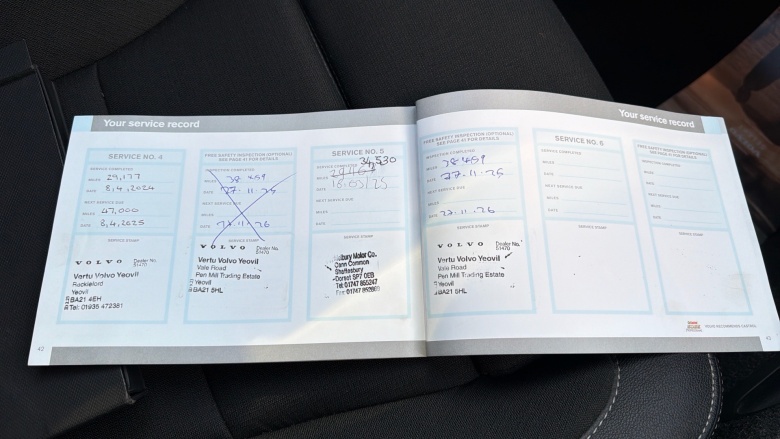 Your service record
SERVICE NO. 4
SERVICE COMPLETED
MILES 29,177
DATE 8,4,2024
NEXT SERVICE DUE
MILES 47,000
DATE 8,4,2025
SERVICE STAMP
VOLVO Dealer No. 51470
Vertu Volvo Yeovil
Yeovil
BA21 4EH
Tel: 01935 472381
FREE SAFETY INSPECTION (OPTIONAL)
SEE PAGE 41 FOR DETAILS
INSPECTION COMPLETED
MILES 38,459
DATE 27.11.25
NEXT SERVICE DUE
MILES
DATE 27.11.26
SERVICE STAMP
VOLVO Dealer No. 51470
Vertu Volvo Yeovil
Vale Road
Pen Mill Trading Estate
Yeovil
BA21 5HL
SERVICE NO. 5
SERVICE COMPLETED
34,530
MILES
DATE 18/03/25
NEXT SERVICE DUE
MILES
DATE
SERVICE STAMP
Motor Co.
Cann Common
Shaftesbury
Dorset SP7 0EB
Tel: 01747 855247
42
Your service record
FREE SAFETY INSPECTION (OPTIONAL)
SEE PAGE 41 FOR DETAILS
INSPECTION COMPLETED
MILES 38 459
DATE 27.11.25
NEXT SERVICE DUE
MILES
DATE 27.11.26
SERVICE STAMP
VOLVO Dealer No. 51470
Vertu Volvo Yeovil
Vale Road
Pen Mill Trading Estate
Yeovil
BA21 5HL
SERVICE NO. 6
SERVICE COMPLETED
MILES
DATE
NEXT SERVICE DUE
MILES
DATE
SERVICE STAMP
FREE SAFETY INSPECTION (OPTIONAL)
SEE PAGE 41 FOR DETAILS
INSPECTION COMPLETED
MILES
DATE
NEXT SERVICE DUE
MILES
DATE
SERVICE STAMP
43